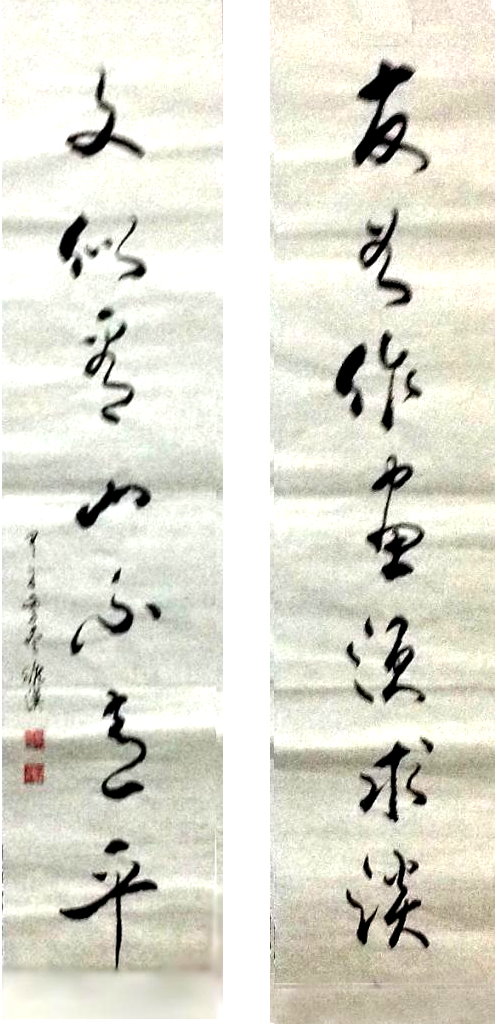 友如作画须求淡
文似看山不喜平